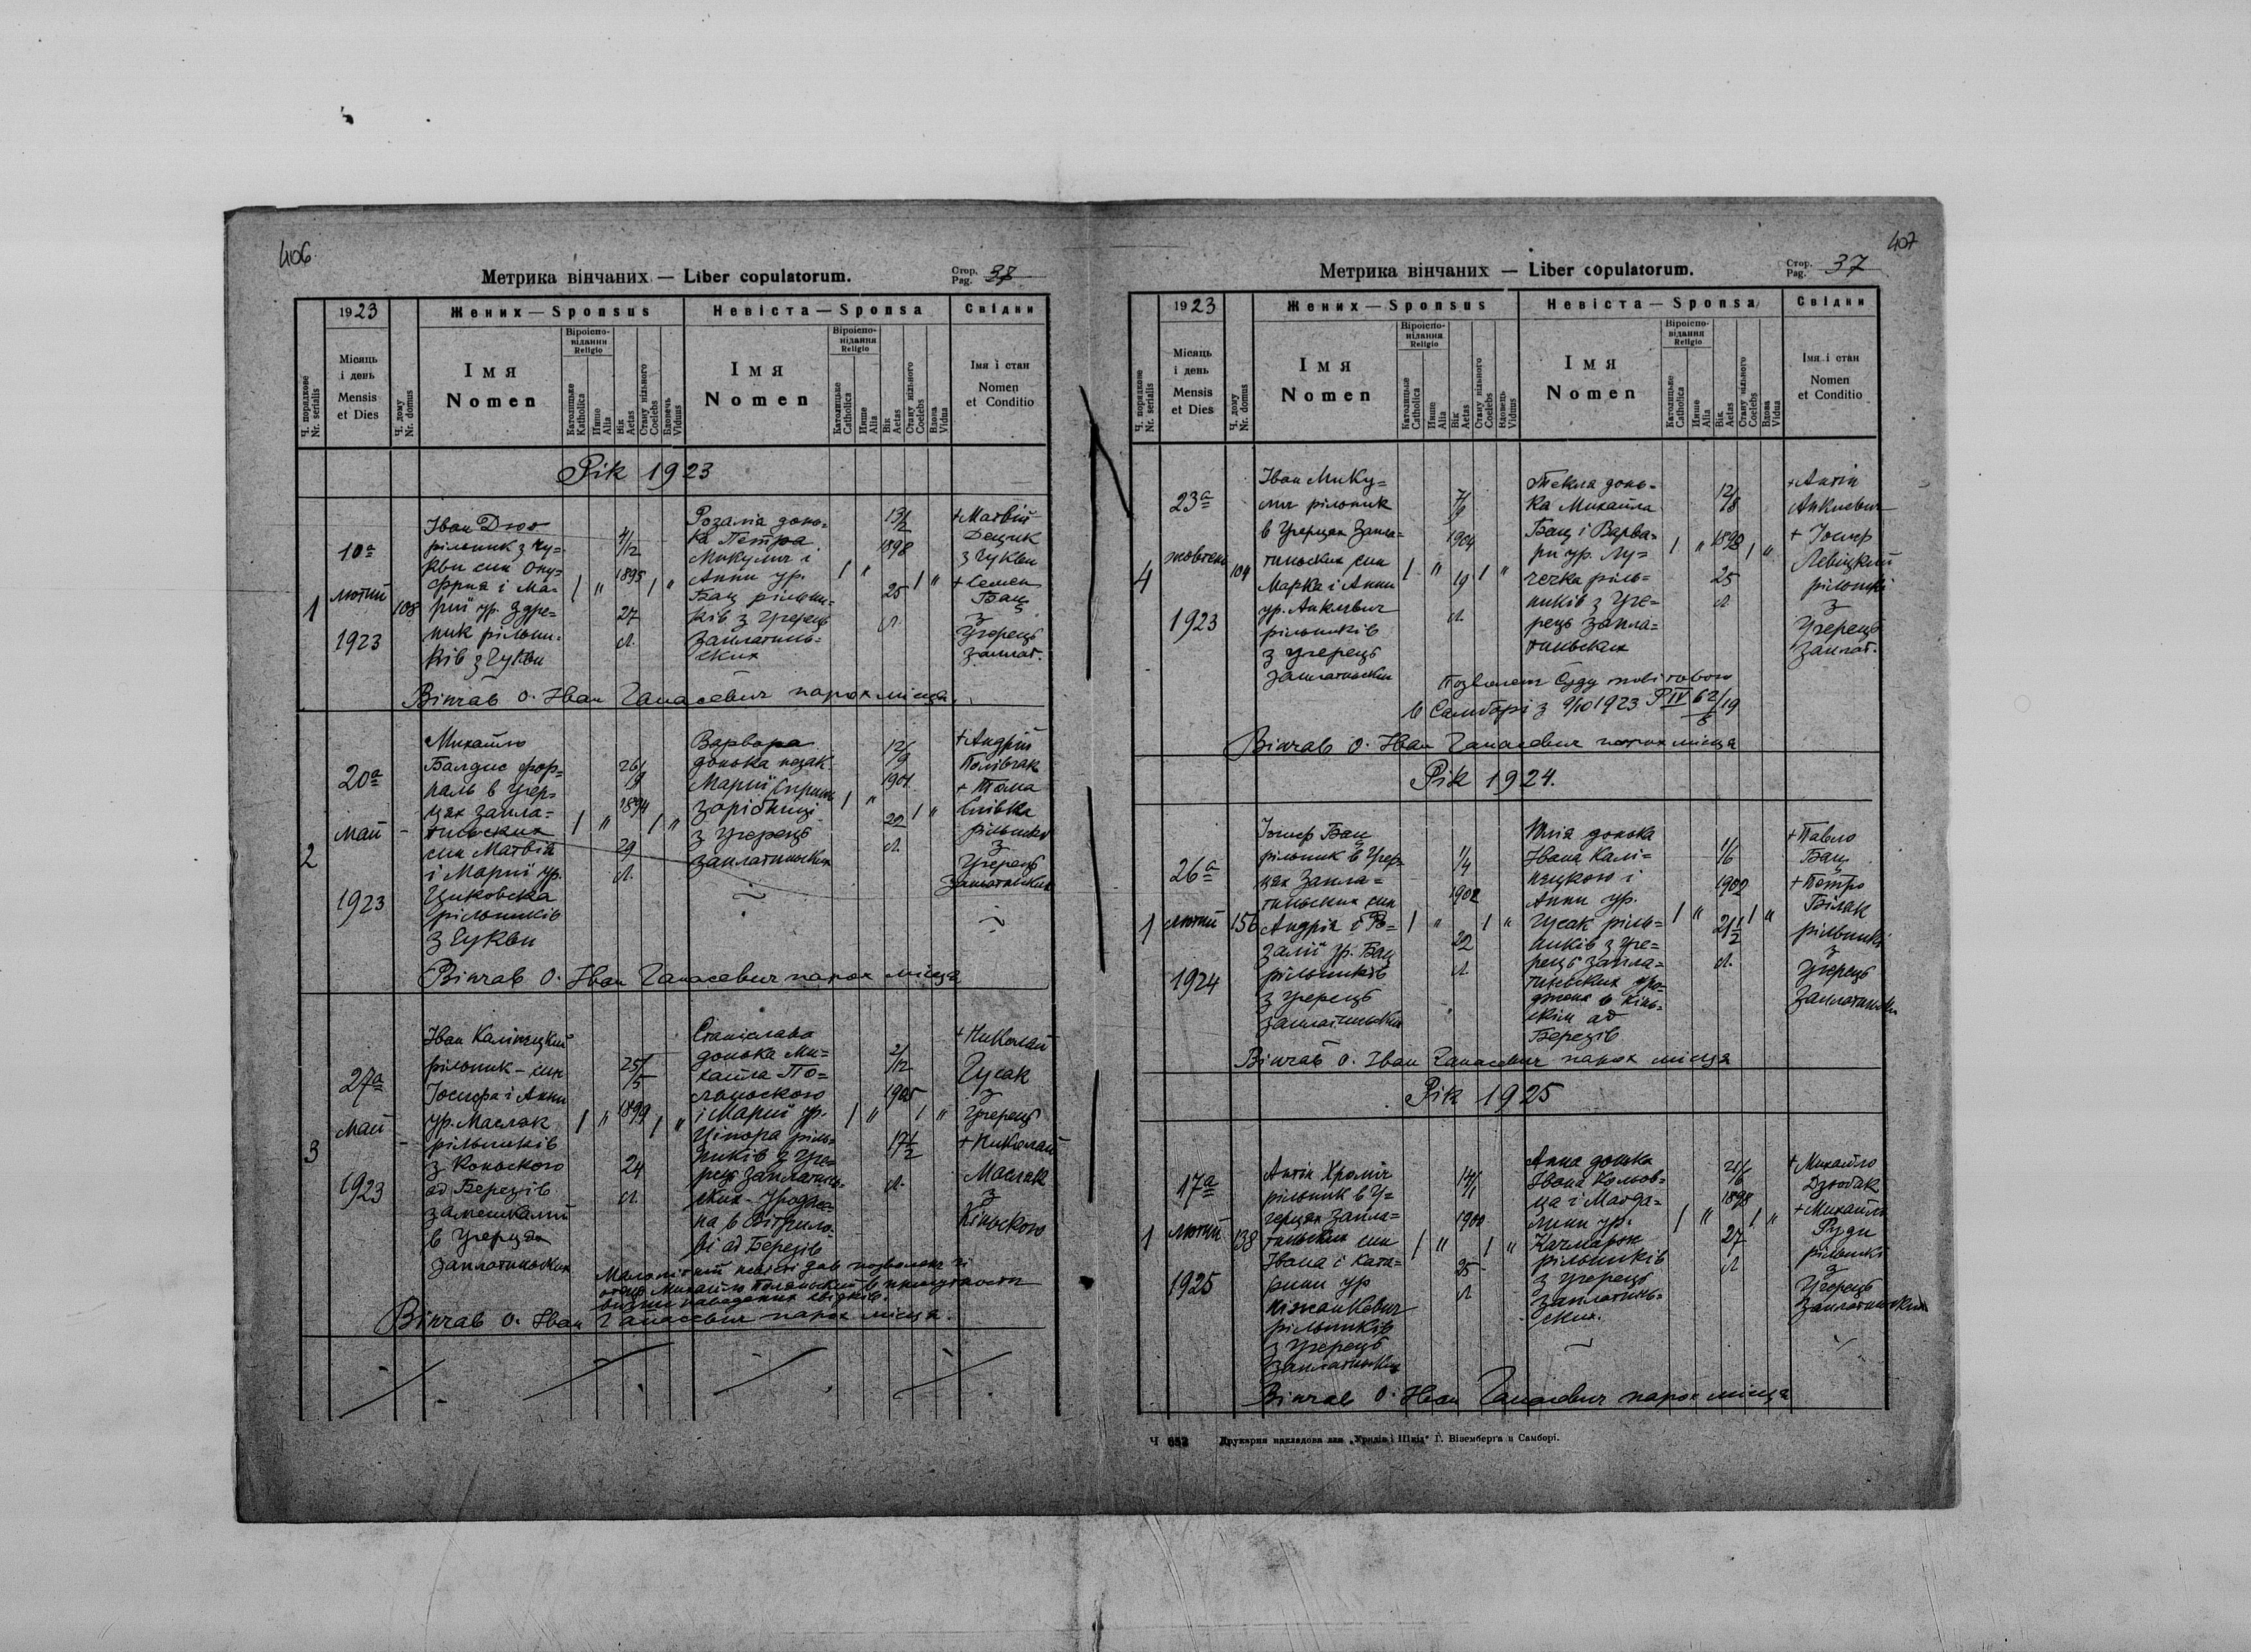 406
Метрика вінчаних — Liber copulatorum.
Стор.
Pag. 37
1923
Жених — Sponsus
Невіста — Sponsa
Свідки
Ч. порядкове
Nr. serialis
Місяць
і день
Mensis
et Dies
Ч. дому
Nr. domus
Імя
Nomen
Віроіспо-
відання
Religio
Католицьке
Katholica
Инше
Alia
Вік
Aetas
Стану вільного
Coelebs
Вдовець
Viduus
Імя
Nomen
Віроіспо-
відання
Religio
Католицьке
Catholica
Инше
Alia
Вік
Aetas
Стану вільного
Coelebs
Вдова
Vidua
Імя і стан
Nomen
et Conditio
Рік 1923
1
10а
лютий
1923
108
Іван Дюс
рільник з Чу-
кви син Ону-
фрия і Ма-
рії ур. Здре-
ник рільни-
ків з Чукви
1 "
4/12
1895
27
л.
1 "
Розалія донь-
ка Петра
Микулич і
Анни ур.
Бац рільни-
ків з Угерець
заплатинь-
ских
1 "
13/2
1898
25
л.
1 "
+ Матвій
Децик
з Чукви
+ Семен
Бац
з
Угерець
заплат.
Вінчав о. Іван Гапасевич парох місця.
2
20а
май
1923
-
Михайло
Балдис фор-
наль в Угер-
цях запла-
тиньских
син Матвія
і Марії ур.
Циковска
рільників
з Чукви
1 "
26/9
1894
29
л.
1 "
Варвара
донька незак.
Марії
зарібниці
з Угерець
заплатиньских
1 "
12/9
1901
22
л.
1 "
+ Андрій
Полівчак
+ Тома
Сливка
рільники
з
Угерець
заплатиньских
Вінчав о. Іван Гапасевич парох місця
3
27а
май
1923
-
Іван Калінецкий
рільник - син
Йосифа і Анни
ур. Масляк
рільників
з Коньского
ад Березів
замешкалий
в Угерцях
заплатиньских
1 "
25/5
1899
24
л.
1 "
Станіслава
донька Ми-
хайла По-
ляньского
і Марії ур.
Ціпора ріль-
ників з Уге-
рець заплатинь-
ских - уродже-
на в Вітрило-
ві ад Березів
1 "
2/12
1905
17 1/2
л.
1 "
+ Николай
Гусак
з
Угерець
+ Николай
Масляк
з
Кіньского
Малолітній невісті дав позволенє її
отець Михайло Поляньский в присутности
висше наведених свідків.
Вінчав о. Іван Гапасевич парох місця.
407
Метрика вінчаних — Liber copulatorum.
Стор.
Pag. 37
1923
Жених — Sponsus
Невіста — Sponsa
Свідки
Ч. порядкове
Nr. serialis
Місяць
і день
Mensis
et Dies
Ч. дому
Nr. domus
Імя
Nomen
Віроіспо-
відання
Religio
Католицьке
Catholica
Инше
Alia
Вік
Aetas
Стану вільного
Coelebs
Вдовець
Viduus
Імя
Nomen
Віроіспо-
відання
Religio
Католицьке
Catholica
Инше
Alia
Вік
Aetas
Стану вільного
Coelebs
Вдова
Vidua
Імя і стан
Nomen
et Conditio
4
23а
жовтень
1923
104
Іван Мику-
лич рільник
в Угерцях Запла-
тиньских син
Марка і Анни
ур. Анклевич
рільників
з Угерець
Заплатиньских
1 "
1904
19
л.
1 "
Текля донь-
ка Михайла
Бац і Варва-
ри ур. Лу-
чечка ріль-
ників з Уге-
рець запла-
тиньских
1 "
12/8
1898
25
л
1 "
+ Антін
Анклевич
+ Йосиф
Левіцкий
рільники
з
Угерець
Заплат.
Позволенє Суду повітового
в Самборі з 9/10 1923 P IV 62/19
8
Вінчав о. Іван Гапасевич парох місця
Рік 1924.
1
26а
лютий
1924
156
Йосиф Бац
рільник в Угер-
цях Запла-
тиньских син
Андрія і Ро-
залії ур. Бац
рільників
з Угерець
заплатиньских
1 "
1/4
1902
22
л
1 "
Юлія донька
Івана Калі-
нецкого і
Анни ур.
Гусак ріль-
ників з Уге-
рець запла-
тиньских уро-
джена в Кінь-
скім ад
Березів
1 "
1/6
1902
21 1/2
л.
1 "
+ Павло
Бац
+ Петро
Біляк
рільники
з
Угерець
Заплатиньских
Вінчав о. Іван Гапасевич парох місця
Рік 1925
1
17а
лютий
1925
138
Антін Хроміч
рільник в У-
герцях Запла-
тиньских син
Івана і Кате-
рини ур
Ніжанкевич
рільників
з Угерець
Заплатиньских
1 "
14/1
1900
25
л
1 "
Анна донька
Івана Кольов-
ца і Магда-
лини ур.
Качмарик
рільників
з Угерець
заплатинь-
ских.
1 "
1898
27
л
1 "
+ Михайло
Дзюбак
+ Михайло
Рудн
рільники
з
Угерець
Заплатиньских
Вінчав о. Іван Гапасевич парох місця
Ч 652 Друкарня накладова для „Урядів і Шкіл" Г. Віземберґа в Самборі.